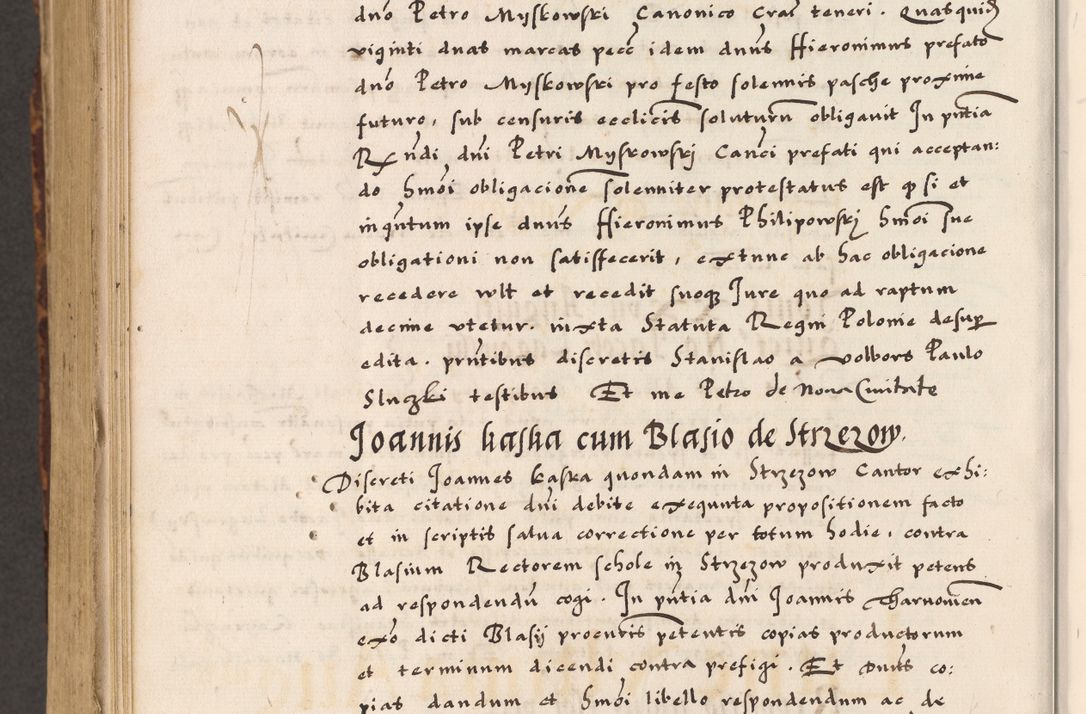 dno Petro Myskowski Canonico Crac teneri. Quasquid
viginti duas marcas pecc idem dnus Hieronimus prefato
dno Petro Myskowski pro festo solennis pasche proxime
futuro, sub censuris ecclicis soluturu obligauit In pntia
Rndi dni Petri Myskowskj Canci prefati qui acceptan:
do hmoi obligacione solenniter protestatus est q si et
inqntum ipse dnus Hieronimus Philipowskj hmoi sue
obligationi non satisffecerit, extunc ab hac obligacione
recedere wlt et recedit suoq Jure quo ad raptum
decime vtetur. iuxta Statuta Regni Polonie desup
edita. pntibus discretis Stanislao a wolbors Paulo
Sluczki testibus Et me Petro de Noua Ciuitate
Joannis kaska cum Blasio de Strzezow.
Discreti Joannes kaska quondam in Strzezow Cantor exhi:
bita citatione dni debite exequuta propositionem facto
et in scriptis salua correctione per totum hodie, contra
Blasium Rectorem schole in Strzezow produxit petens
ad respondendu cogi. In pntia dni Joannis Tharnouien
exo dicti Blasij procuris petentis copias productorum
et terminum dicendi contra prefigi. Et Dnus co:
pias dandum et hmoi libello respondendum ac de